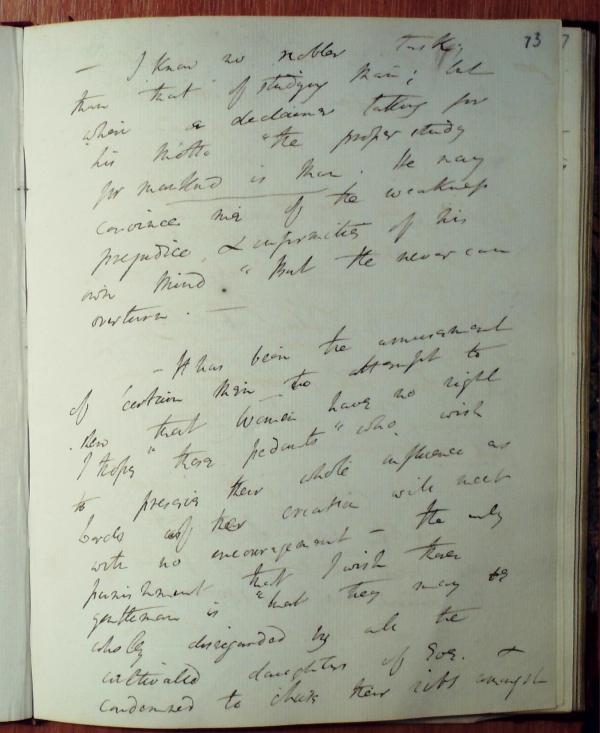 73
— I know no nobler task,
than that of studying Man; but
when a declaimer taking for
his Motto "the proper study
for mankind is Man. He may
convince me of the weakness
prejudice, & infirmities of his
own Mind " But he never can
overturn. —
— It has been the amusement
of certain Men to attempt to
shew that Women have no right
I hope " these pedants" who wish
to preserve their whole influence as
Lords of the creation will meet
with no encouragement — the only
punishment that I wish these
gentlemen is "that they may be
wholly disregarded by all the
cultivated daughters of Eve. &
condemned to their ribs amongst